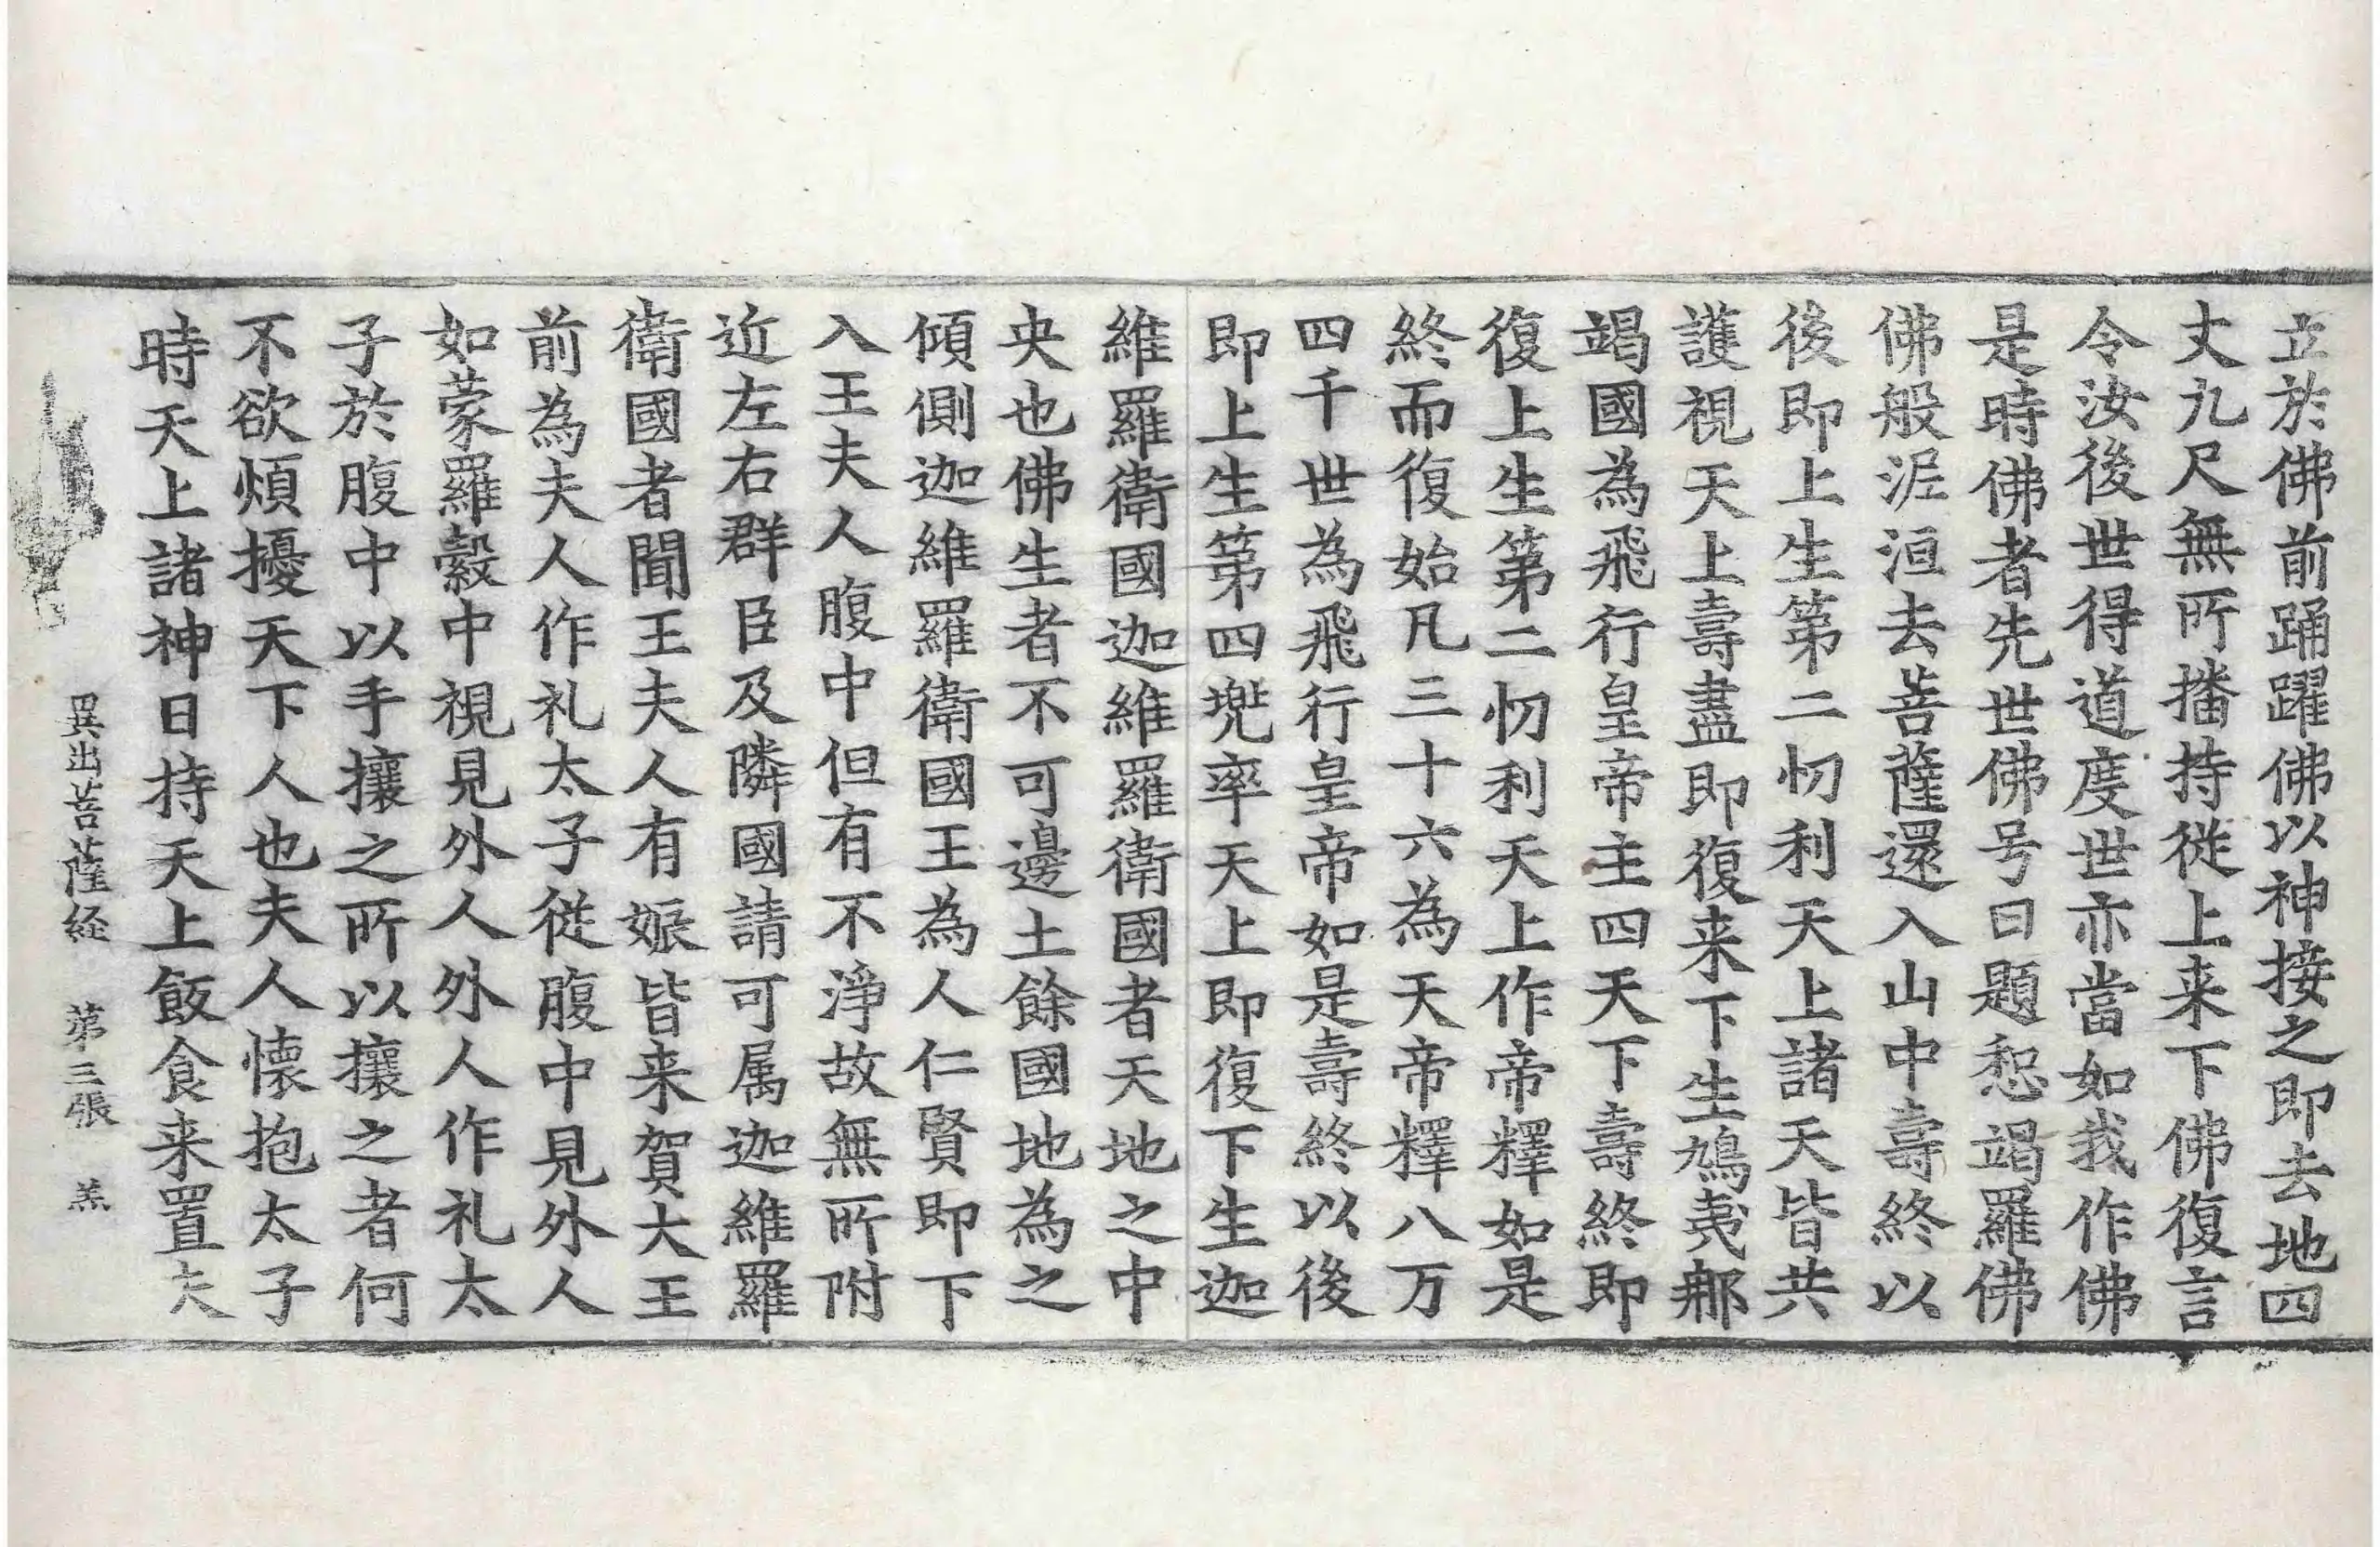 立於佛前踊躍佛以神接之即去地四
丈九尺無所播持從上来下佛復言
令汝後世得道度世亦當如我作佛
是時佛者先世佛号曰題惒竭羅佛
佛般泥洹去菩薩還入山中壽終以
後即上生第二忉利天上諸天皆共
護視天上壽盡即復来下生鳩夷那
竭國為飛行皇帝主四天下壽終即
復上生第二忉利天上作帝釋如是
終而復始凡三十六為天帝釋八万
四千世為飛行皇帝如是壽終以後
即上生第四兠率天上即復下生迦
維羅衛國迦維羅衛國者天地之中
央也佛生者不可邊土餘國地為之
傾側迦維羅衛國王為人仁賢即下
入王夫人腹中但有不淨故無所附
近左右群臣及隣國請可属迦維羅
衛國者聞王夫人有娠皆来賀大王
前為夫人作礼太子從腹中見外人
如蒙羅縠中視見外人外人作礼太
子於腹中以手攘之所以攘之者何
不欲煩擾天下人也夫人懷抱太子
時天上諸神日持天上飯食来置夫
異出菩薩経 第三張 羔